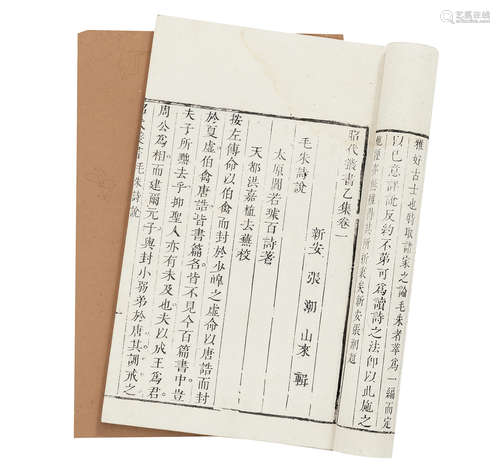 雅好古士也
以己意評說反約不第可為讀詩之法即以此施之
新安張潮題
昭代叢書乙集卷一
新安 張 潮 山來 輯
毛朱詩說
太原閻若璩百詩著
天都洪嘉植去蕪校
按左傳命以伯禽而封於少皞之虛命以唐誥而封
於夏虛伯禽唐誥皆書篇名皆不見今百篇書中豈
夫子所黜去乎抑聖人亦有未及也夫以成王為君
周公為相而建爾元子與封小弱弟於唐其訓戒之
毛朱詩說